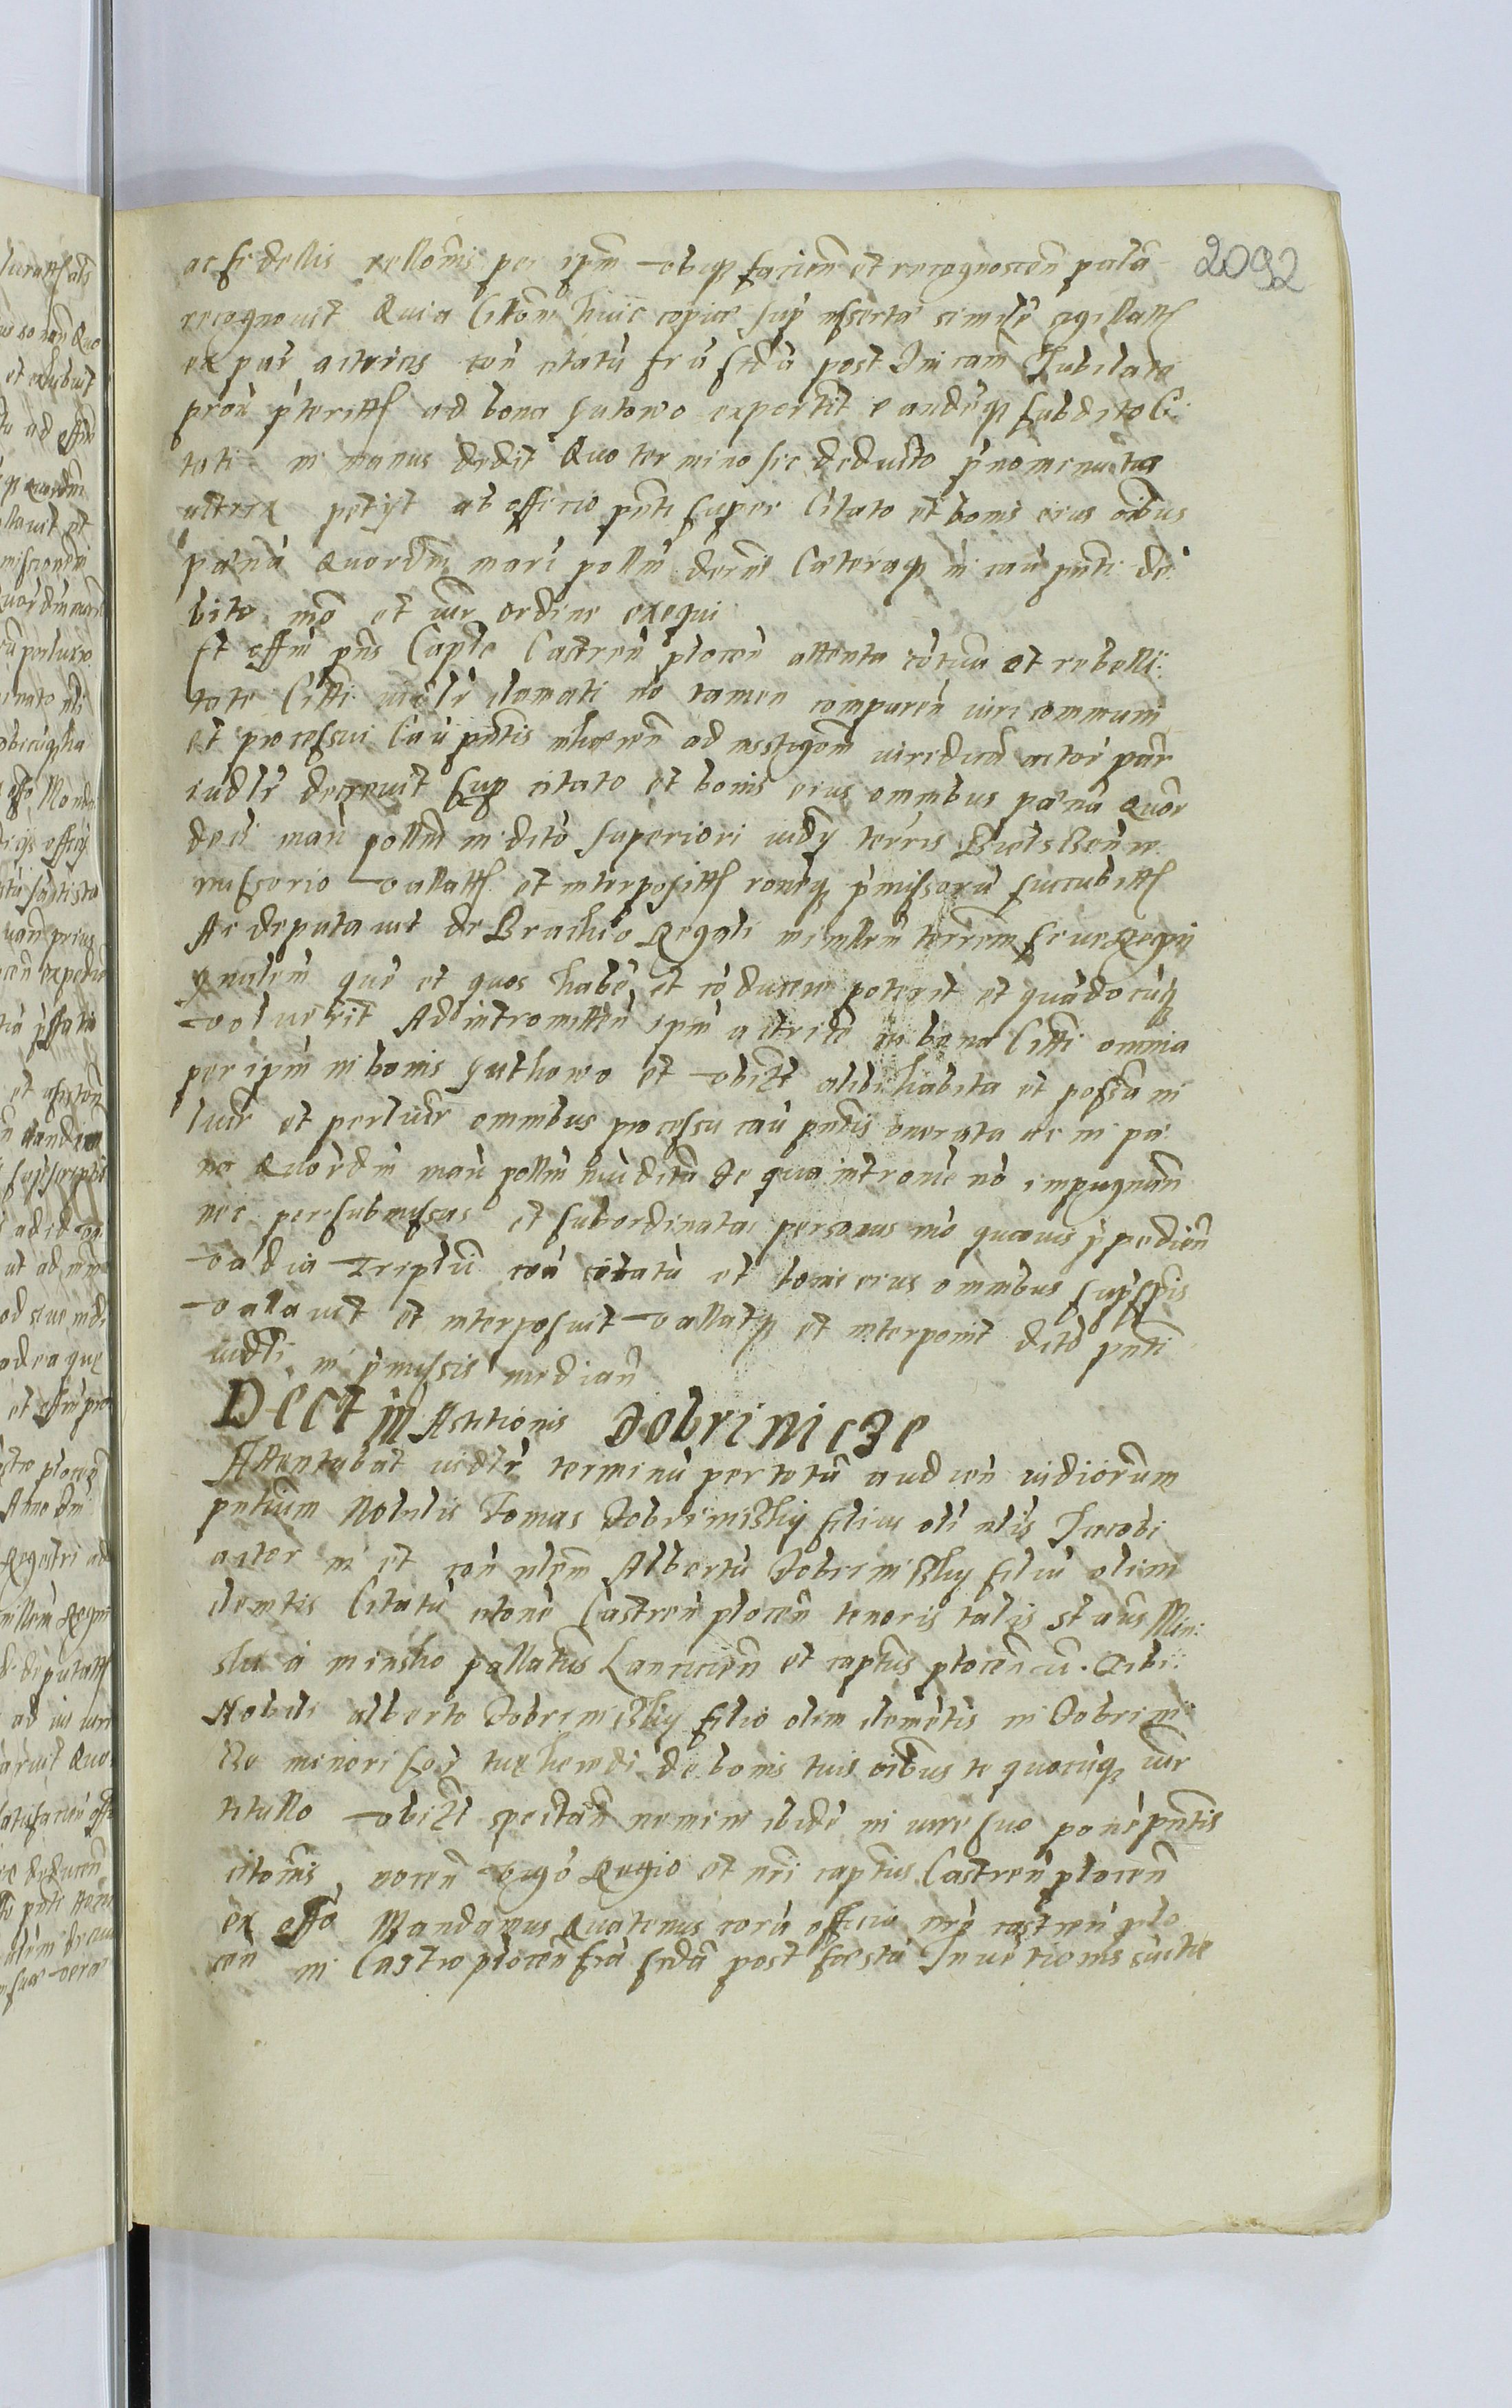 2092
ac fidellis rellonis per ipm ubiq facien et recognoscen pala
recognovit Quia Citone huic copiae sup inserta simile sigillatt
ex par actricis con citatu fra scda post Dnicam Jubilate
prox pteritt ad bona Gutowo exportit eandeq subdito Ci:
tati in manus dedit Quo termino sic deducto pnominata
actrix petyt ab officio pnti super Citato et bonis eius oibus
paena Quordm mari pollin decerni Caeteraq in cau pnti de
bito mo et iur ordine exequi
Et offm pns Caple Castren plocen attenta cotum et rebelli:
tate Citti iudlr clamati no tamen comparen iuri communi
et processui Cau pntis inhaeren ad instigom iuridica actor par
iudlr decrevit sup citato et bonis eius omnibus paena Quor
deci mari pollin in dito superiori iudy terris
missorio vallatt et interpositt roneq pmissoru succubitt
Ac deputavit de Brachio Regali min terrem sive Regny
gnalem que et quos habe et coducere poterit et quadocuq
voluerit Ad intromitten ipm actrice in bona Citti omnia
per ipm in bonis Guthowo et ubilt alibi habita et possa in
iur et per iur omnibus processu cau pntis onerata ac in pae
na Quordm mari pollin iudita de qua introne no impugnan
nec per submissas et subordinatas personas mo quovis ppedien
vadia triplici con citatu et bonis eius omnibus supsptis
valavit et interposuit vallatq et interponit dito pnti
iudli in pmissis median
Dect in Astitionis Dobrinicze
Attentabat iudlr terminu per totu audien iudiorum
pntium Nobilis Tomas Dobrinisky filius oli nlis Jacobi
actor in et con nlem Albertu Dobrinisky filiu olim
clemtis Citatu citone Castren plocen tenoris talis Staus Min:
ski a minsko pallatus Lancicien et captus plocen Tibi:
Nobili alberto Dobrinisky filio olim clemetis in Dobrini
cze minori sor tuae heredi de bonis tuis oibus te quocuq iur
titullo ubilt spectan nemini ibide in iure suo pone pntis
citonis nocen vigo Regio et nri captus Castren plocen
ex offo Mandamus Quatenus coru officio nro castren plo
cen in Castro plocen fra scda post festu Inventionis sancte